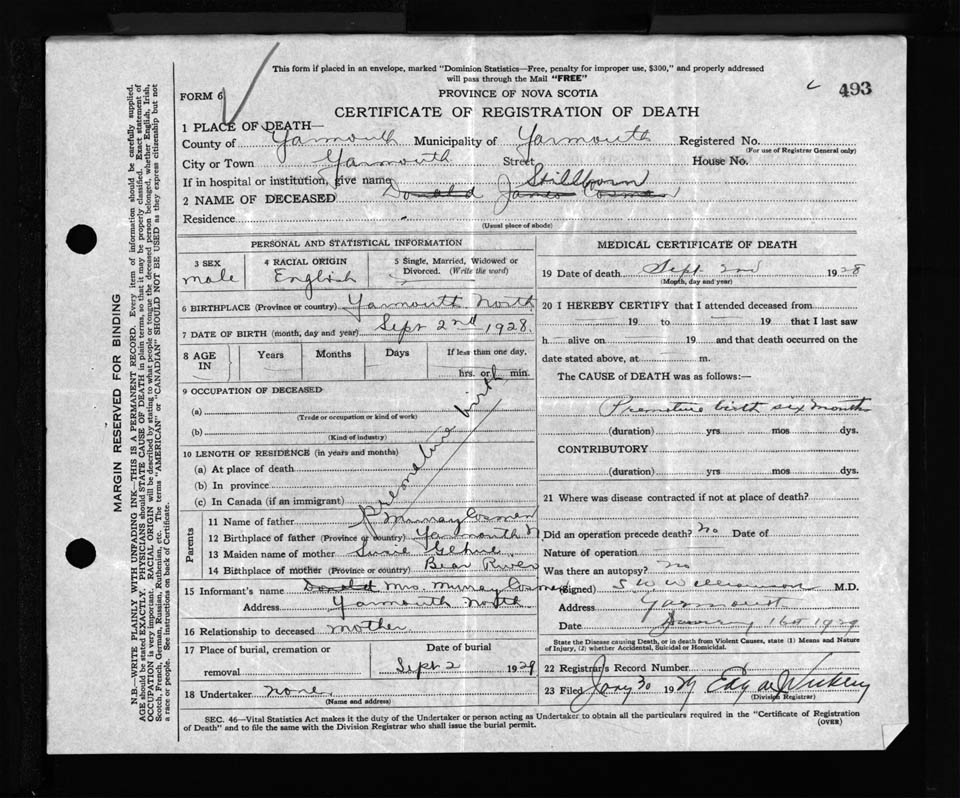 This form if placed in an envelope, marked "Dominion Statistics—Free, penalty for improper use, $300," and properly addressed
will pass through the Mail "FREE"
FORM 6
PROVINCE OF NOVA SCOTIA
493
CERTIFICATE OF REGISTRATION OF DEATH
1 PLACE OF DEATH—
County of Yarmouth Municipality of Yarmouth Registered No.
(For use of Registrar General only)
City or Town Yarmouth Street House No.
If in hospital or institution, give name Stillborn
2 NAME OF DECEASED Donald James Cosman
Residence
(Usual place of abode)
PERSONAL AND STATISTICAL INFORMATION
3 SEX 4 RACIAL ORIGIN 5 Single, Married, Widowed or
Divorced. (Write the word)
male English
6 BIRTHPLACE (Province or Country) Yarmouth North
7 DATE OF BIRTH (month, day and year) Sept 2nd 1928.
8 AGE IN Years Months Days If less than one day,
hrs. or min.
9 OCCUPATION OF DECEASED
(a)
(Trade or occupation or kind of work)
(b)
(Kind of industry)
premature birth
10 LENGTH OF RESIDENCE (in years and months)
(a) At place of death
(b) In province
(c) In Canada (if an immigrant)
Parents
11 Name of father Murray Cosman
12 Birthplace of father (Province or country) Yarmouth N
13 Maiden name of mother Susie
14 Birthplace of mother (Province or country) Bear River
15 Informant's name Donald Mrs Murray Cosman
Address Yarmouth North
16 Relationship to deceased mother
17 Place of burial, cremation or Date of burial
removal Sept 2 1929
18 Undertaker none.
(Name and address)
MEDICAL CERTIFICATE OF DEATH
19 Date of death Sept 2nd 1928
(Month, day and year)
20 I HEREBY CERTIFY that I attended deceased from
19 to 19 that I last saw
h alive on 19 and that death occurred on the
date stated above, at m.
The CAUSE of DEATH was as follows:—
Premature birth six months
(duration) yrs mos dys.
CONTRIBUTORY
(duration) yrs mos dys.
21 Where was disease contracted if not at place of death?
Did an operation precede death? No Date of
Nature of operation
Was there an autopsy? no
(Signed) S W Williamson M.D.
Address Yarmouth
Date January 1929
State the Disease causing Death, or in death from Violent Causes, state (1) Means and Nature
of Injury, (2) whether Accidental, Suicidal or Homicidal.
22 Registrar's Record Number
23 Filed Jany 30 1929 Edgar
(Division Registrar)
SEC. 46—Vital Statistics Act makes it the duty of the Undertaker or person acting as Undertaker to obtain all the particulars required in the "Certificate of Registration
of Death" and to file the same with the Division Registrar who shall issue the burial permit.
(OVER)
MARGIN RESERVED FOR BINDING
N.B.—WRITE PLAINLY WITH UNFADING INK—THIS IS A PERMANENT RECORD. Every item of information should be carefully supplied.
AGE should be stated EXACTLY. PHYSICIANS should STATE CAUSE OF DEATH in plain terms, so that it may be properly classified. Exact statement of
OCCUPATION is very important. RACIAL ORIGIN will be described by stating to what people or tongue the deceased person belonged, whether English, Irish,
Scotch, French, German, Russian, Ruthenian, etc. The terms "AMERICAN" or "CANADIAN" SHOULD NOT BE USED as they express citizenship but not
a race or people. See instructions on back of Certificate.